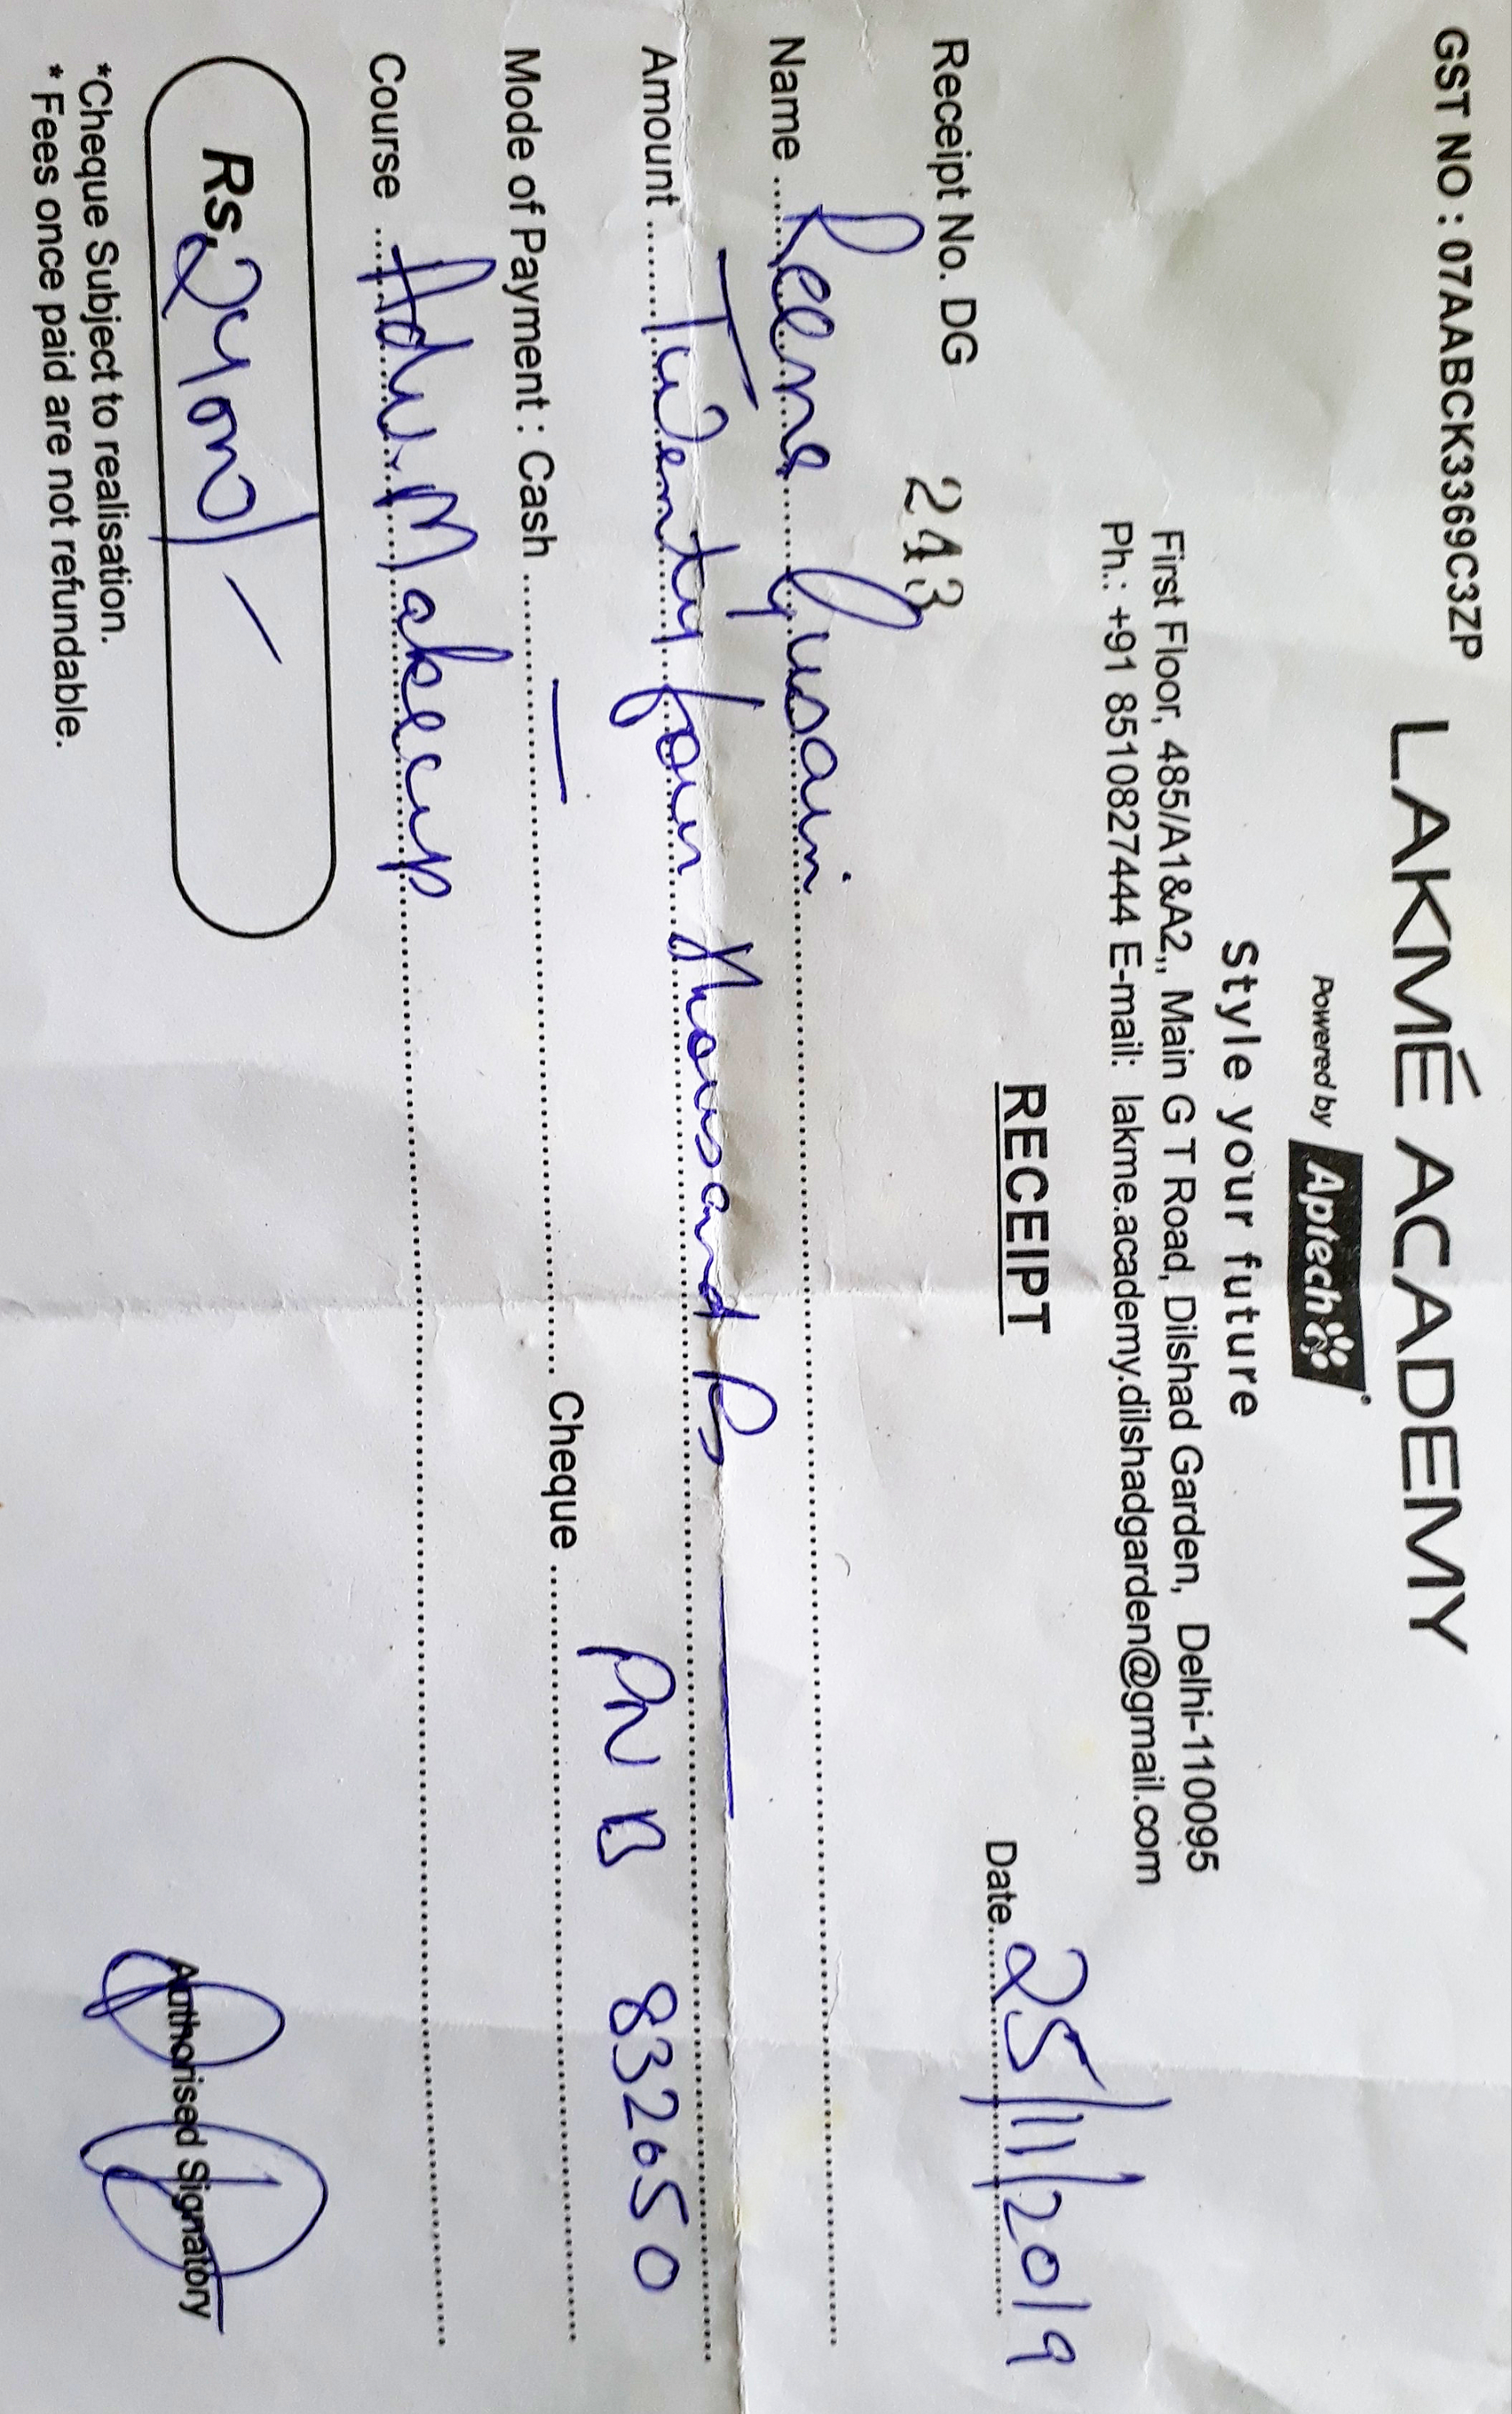 GST NO : 07AABCK3369C3ZP
LAKMÉ ACADEMY
Powered by Aptech
Style your future
First Floor, 485/A1&A2,, Main G T Road, Dilshad Garden, Delhi-110095
Ph.: +91 8510827444 E-mail: lakme.academy.dilshadgarden@gmail.com
RECEIPT
Receipt No. DG 243 Date 25/11/2019
Name Reena Gusain
Amount Twenty four thousand Rs
Mode of Payment : Cash — Cheque PNB 832650
Course Adv. Makeup
Rs. 24000/-
*Cheque Subject to realisation.
* Fees once paid are not refundable.
Authorised Signatory